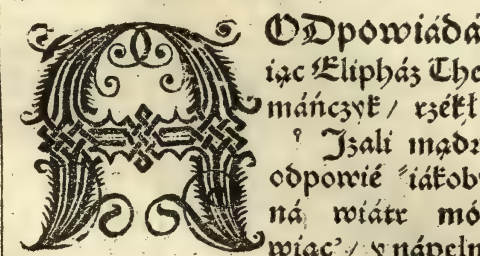 A ODpowiádá
iąc Elipház The
máńczyk / rzékł
Izali mądr
odpowié iákoby
ná wiátr mó
wiąc / y nápełn